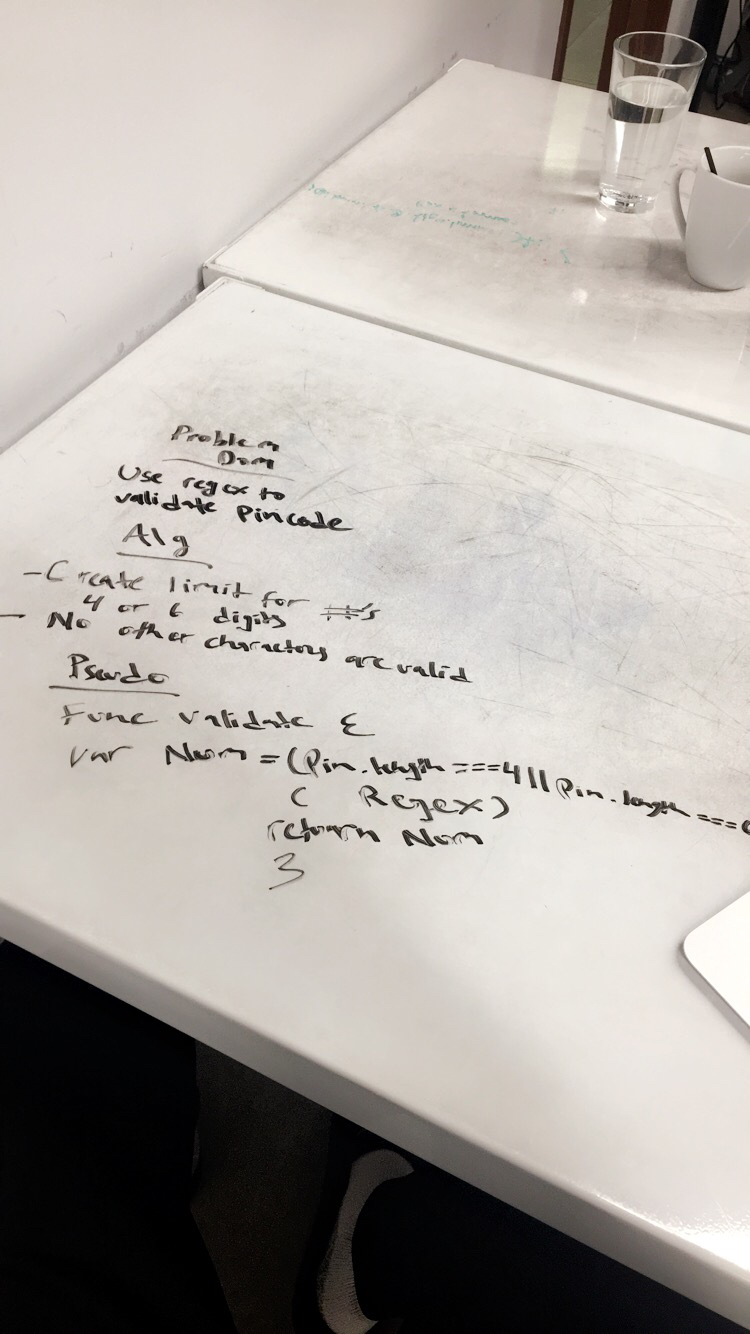 Problem
Dom
Use regex to
validate Pincode
Alg
-Create limit for #'s
4 or 6 digits
- No other charactors are valid
Pseudo
Func validate {
var Nom = (Pin.length ===4 || Pin.length ===6
( Regex)
return Nom
}